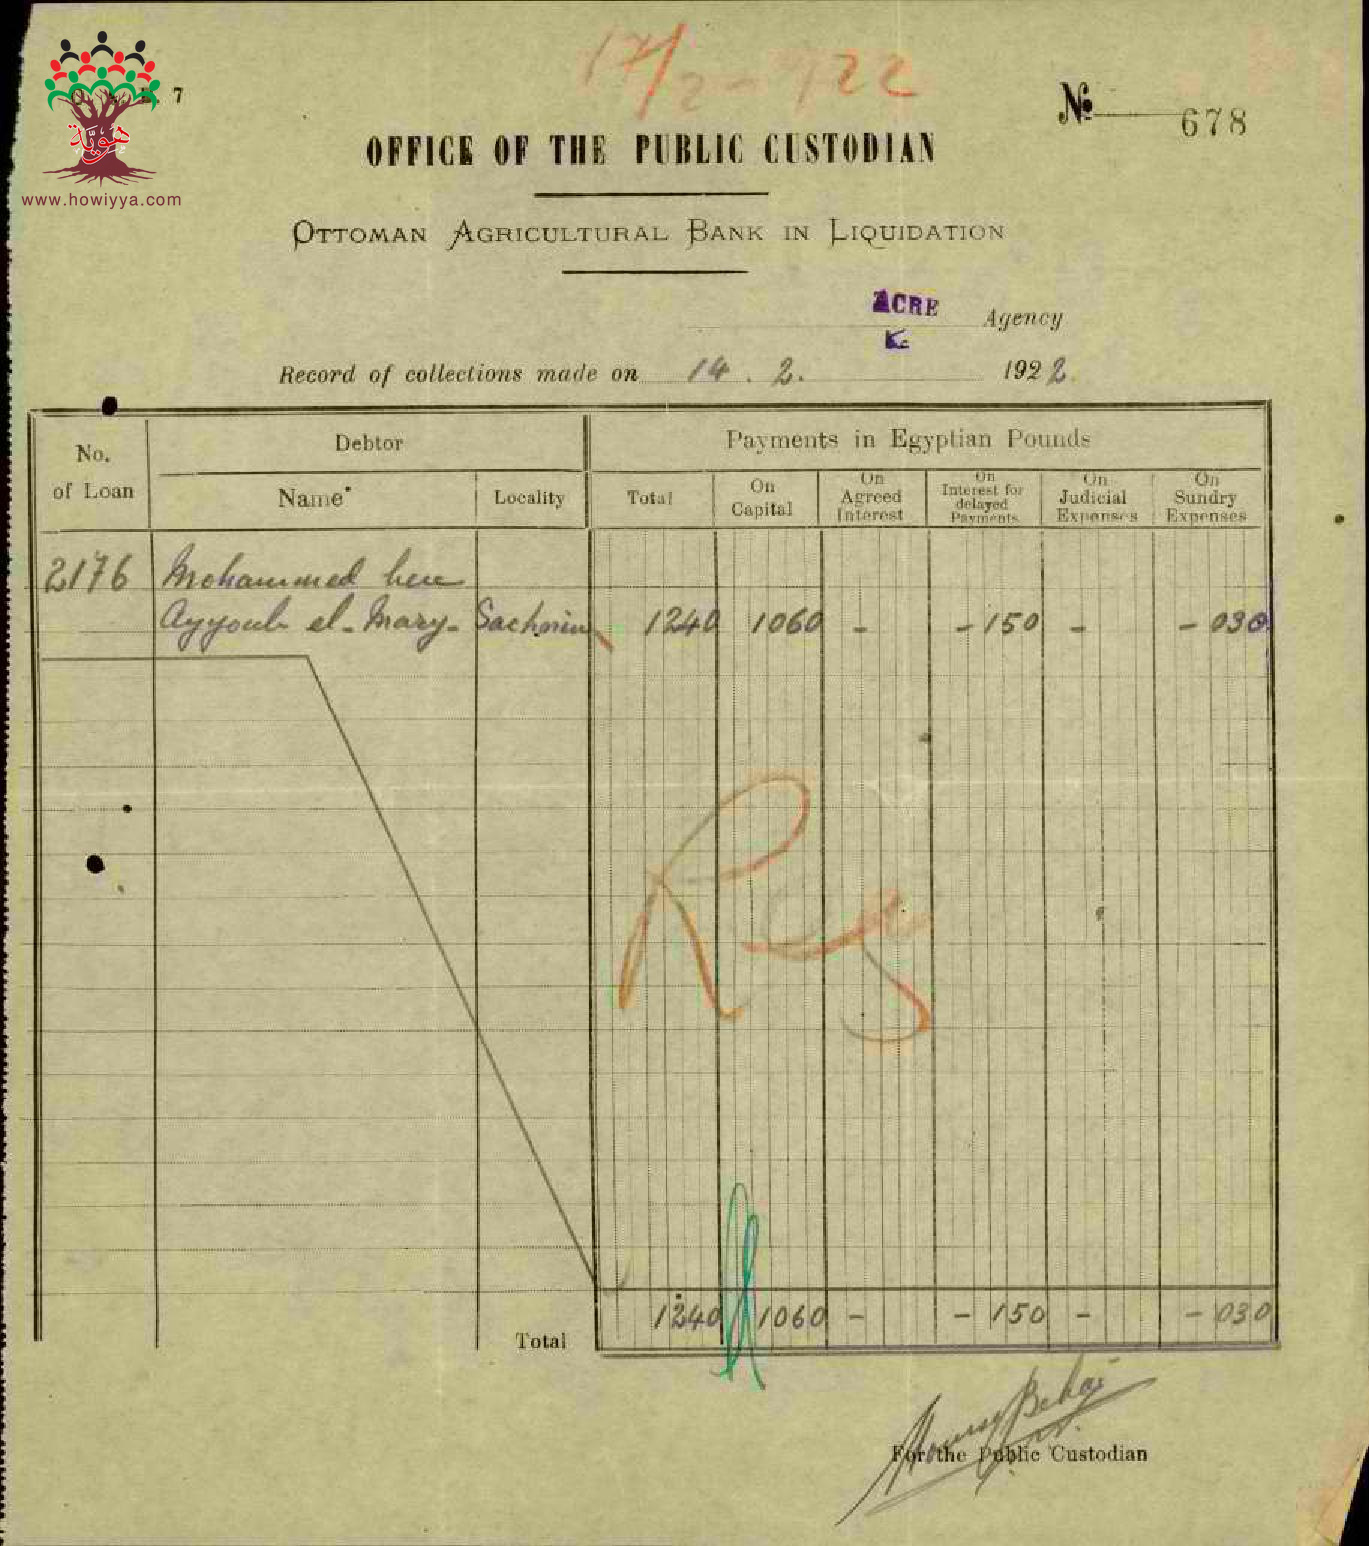 17/2-922
7
هوية
www.howiyya.com
No 678
OFFICE OF THE PUBLIC CUSTODIAN
OTTOMAN AGRICULTURAL BANK IN LIQUIDATION
ACRE Agency
Record of collections made on 14. 2. 1922
No. of Loan
Debtor
Payments in Egyptian Pounds
Name
Locality
Total
On Capital
On Agreed Interest
On Interest for delayed Payments
On Judicial Expenses
On Sundry Expenses
2176 Mohammed
Ayyoub el-Mary- Sachnin 1240 1060 - -150 - -030
Reg
Total 1240 1060 - -150 - -030
For the Public Custodian